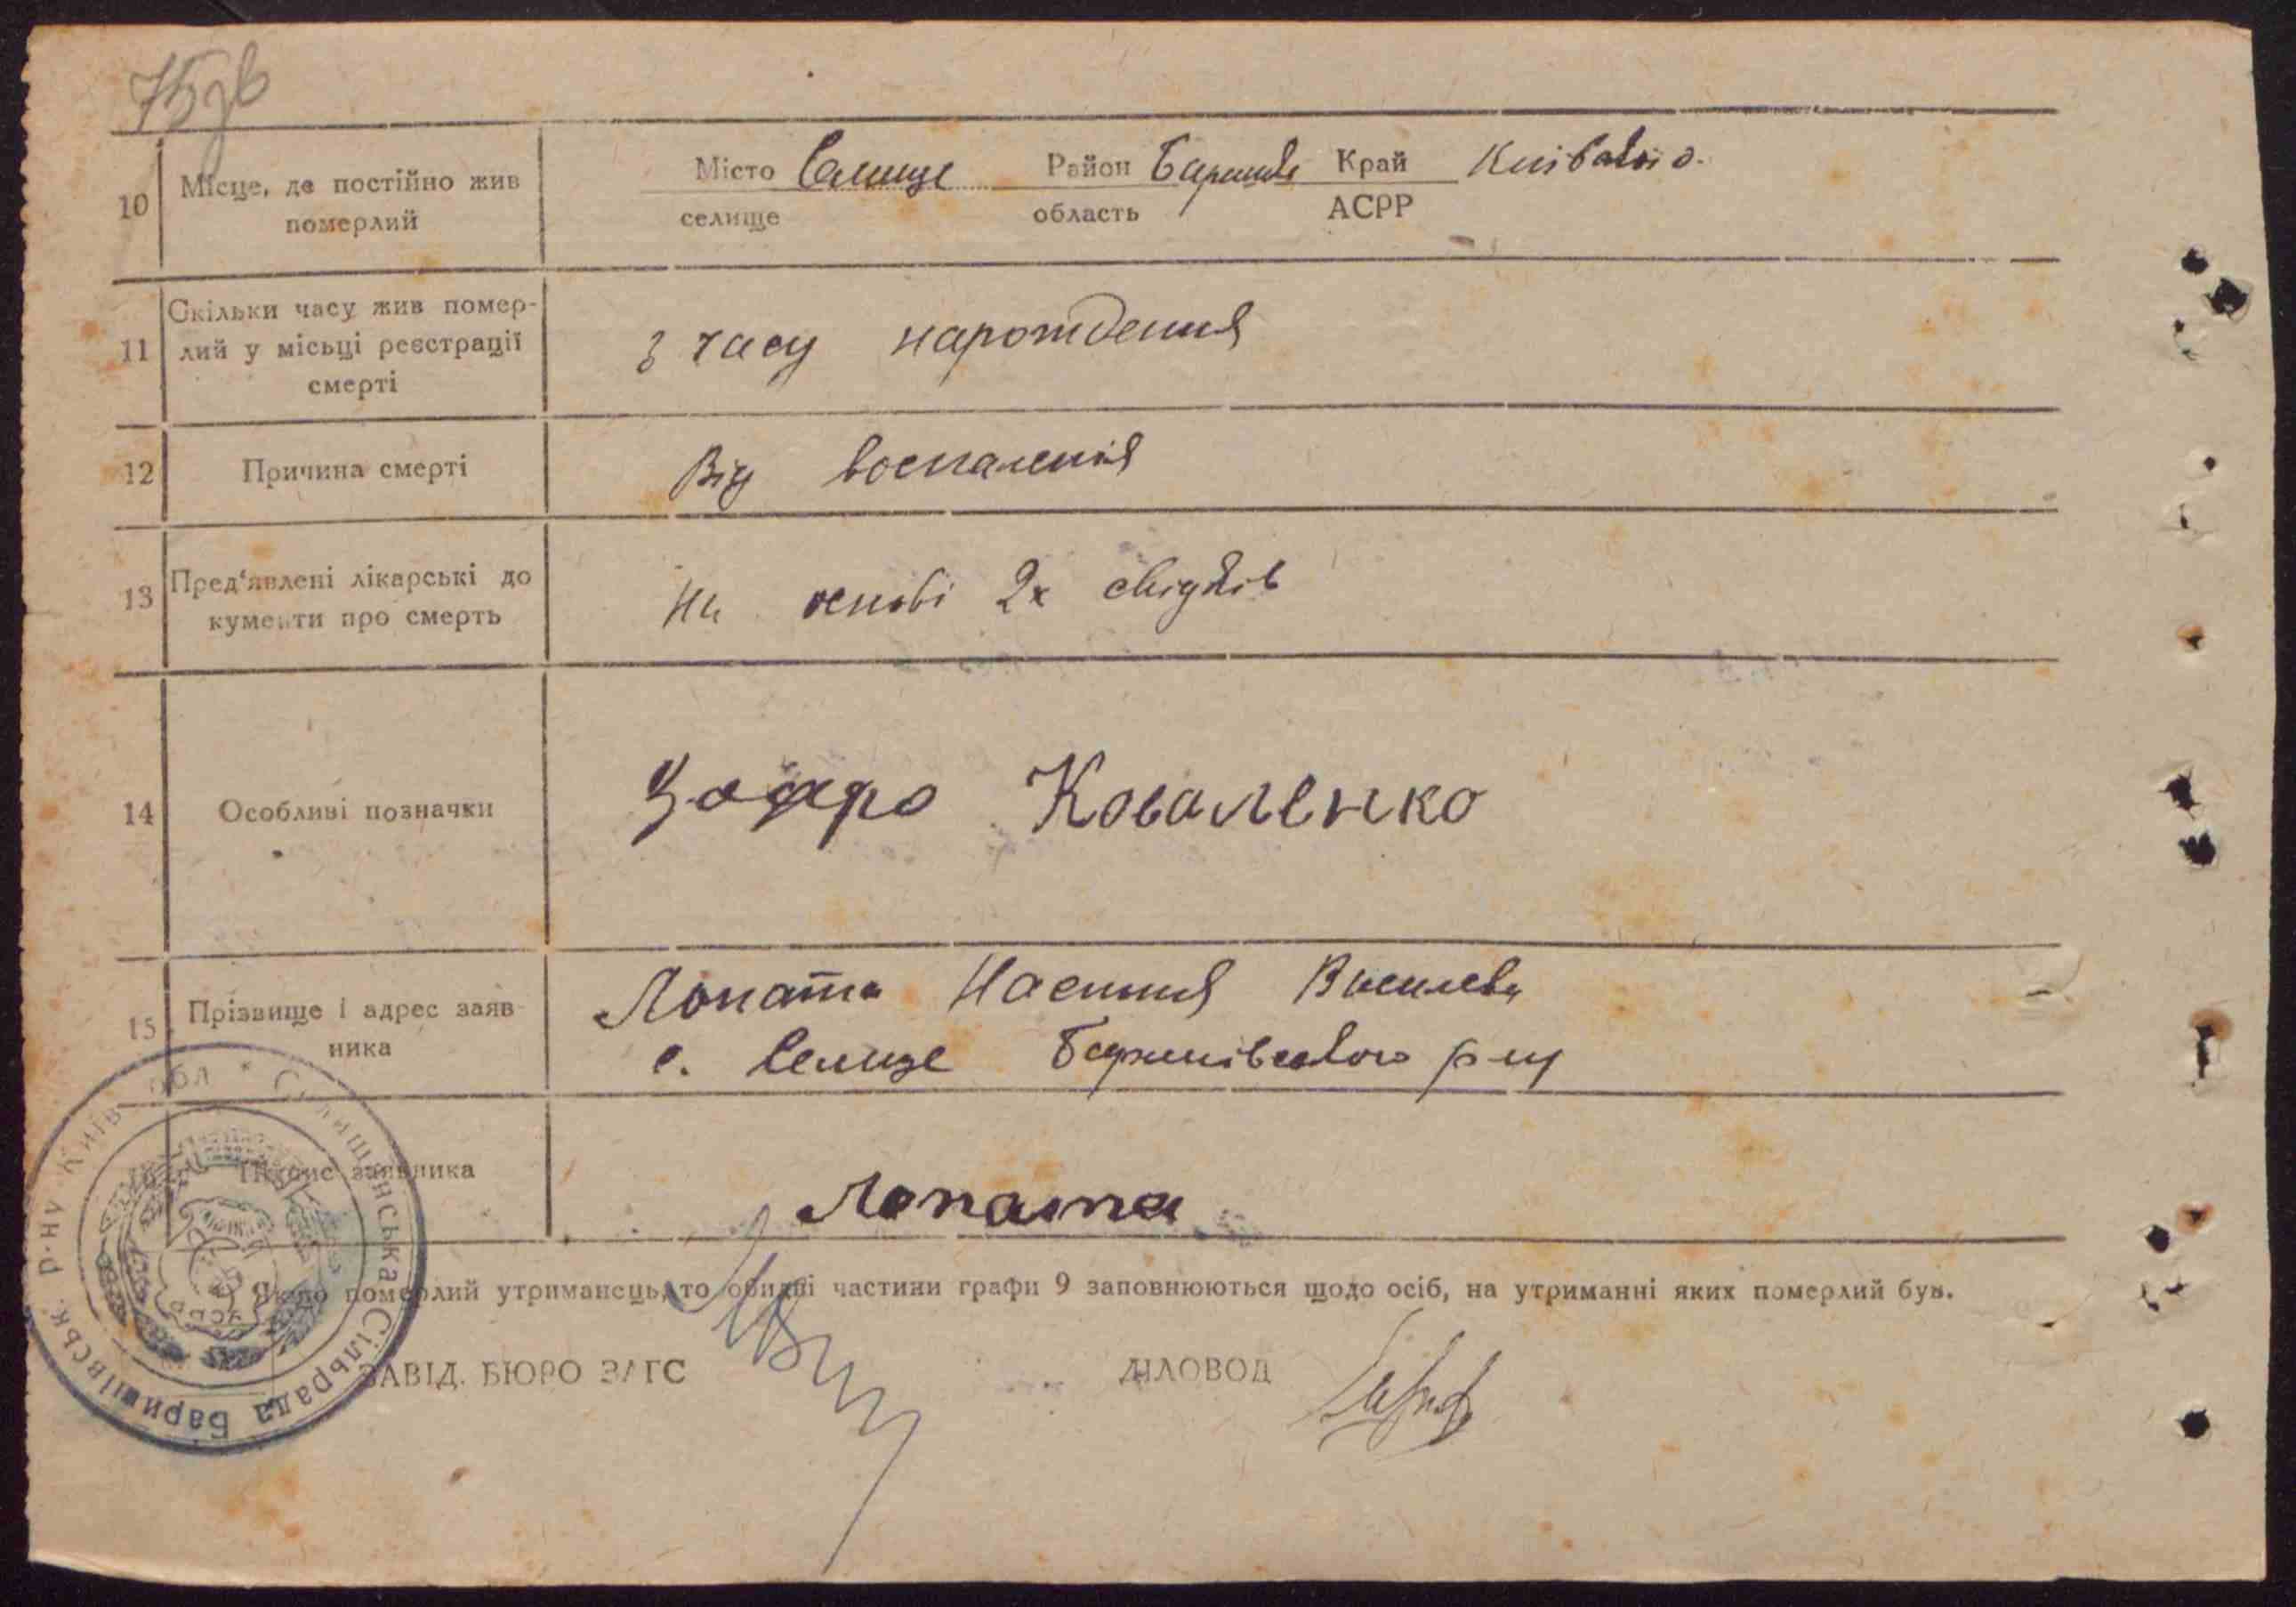 75 зв
10 Місце, де постійно жив померлий
Місто Селище Район Баришів Край Київської о.
селище область АСРР
11 Скільки часу жив помер-
лий у місьці реєстрації
смерті
з часу нарождения
12 Причина смерті
Від воспаления
13 Пред'явлені лікарські до
кументи про смерть
На основі 2х свідків
14 Особливі позначки
Коваленко
15 Прізвище і адрес заяв
ника
Лопата Настя Василевн
с. Селище Баришівського р-ну
Підпис заявника
Лопата
Якщо померлий утриманець, то обидві частини графи 9 заповнюються щодо осіб, на утриманні яких померлий був.
ЗАВІД. БЮРО ЗАГС
ДІЛОВОД
Селищанська Сільрада Баришівськ. р-ну Київ обл *
УСРР